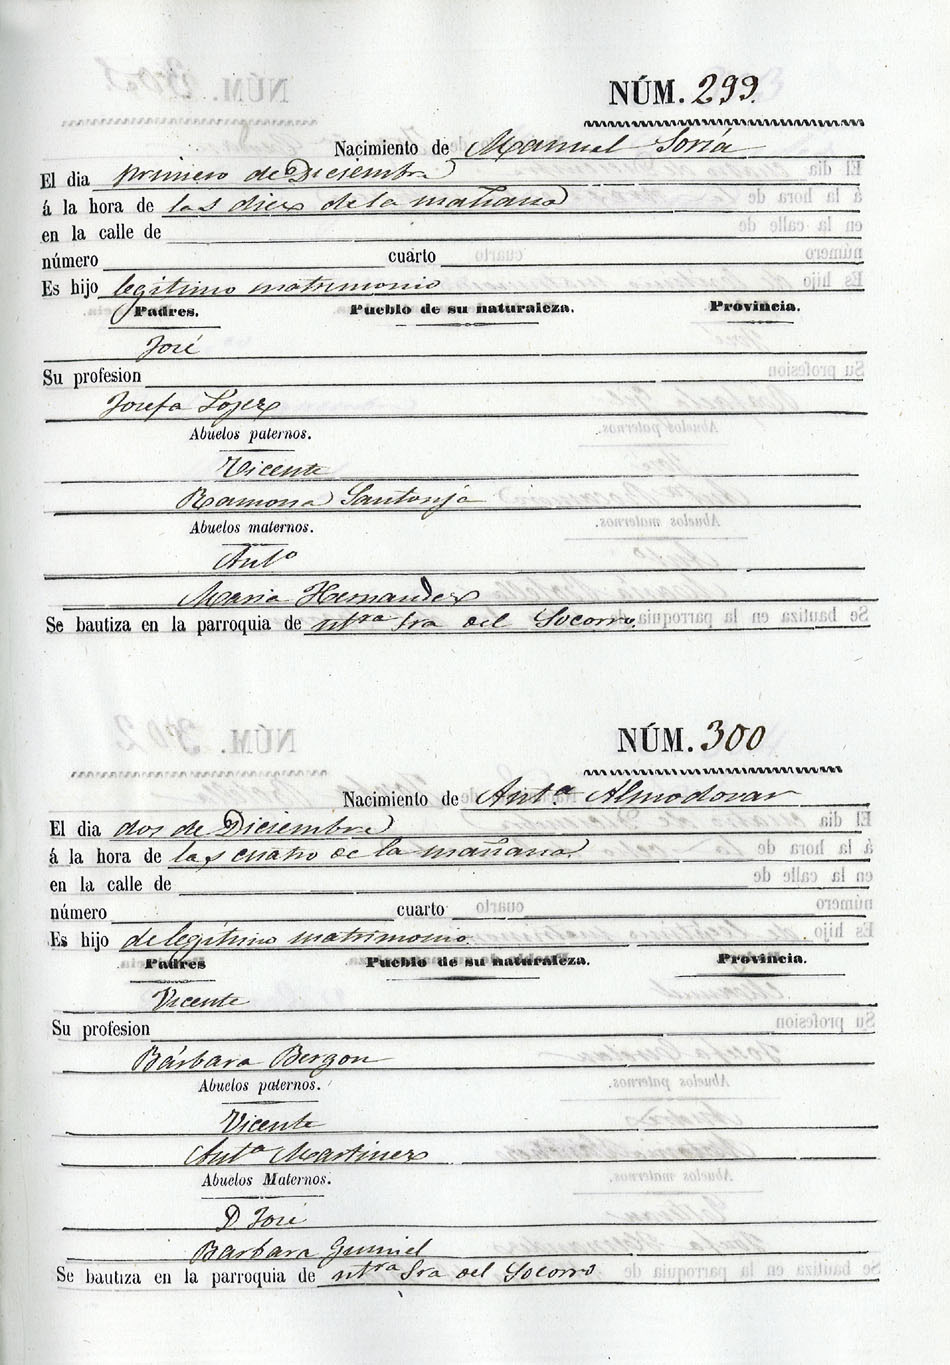 NÚM. 299.
Nacimiento de Manuel Soria
El dia primero de Diciembre
á la hora de las diez de la mañana
en la calle de
número cuarto
Es hijo legitimo matrimonio
Padres. Pueblo de su naturaleza. Provincia.
José
Su profesion
Josefa Lopez
Abuelos paternos.
Vicente
Ramona Santonja
Abuelos maternos.
Antº
Maria Hernandez
Se bautiza en la parroquia de ntra Sra del Socorro.
NÚM. 300
Nacimiento de Antª Almodovar
El dia dos de Diciembre
á la hora de las cuatro de la mañana.
en la calle de
número cuarto
Es hijo de legitimo matrimonio.
Padres Pueblo de su naturaleza. Provincia.
Vicente
Su profesion
Bárbara Bergon
Abuelos paternos.
Vicente
Antª Martinez
Abuelos Maternos.
D José
Barbara
Se bautiza en la parroquia de ntra Sra del Socorro